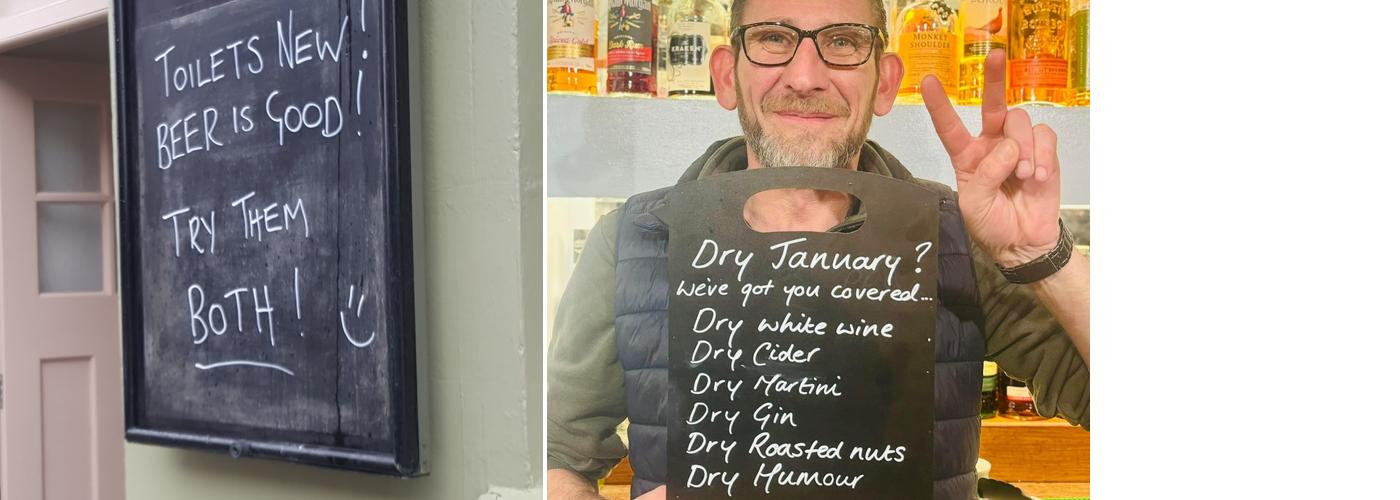 TOILETS NEW!
BEER IS GOOD!
TRY THEM
BOTH!
Spiced Gold
Dark Rum
KRAKEN
MONKEY
SHOULDER
BULLEIT
BOURBON
Dry January?
We've got you covered...
Dry white wine
Dry Cider
Dry Martini
Dry Gin
Dry Roasted nuts
Dry Humour